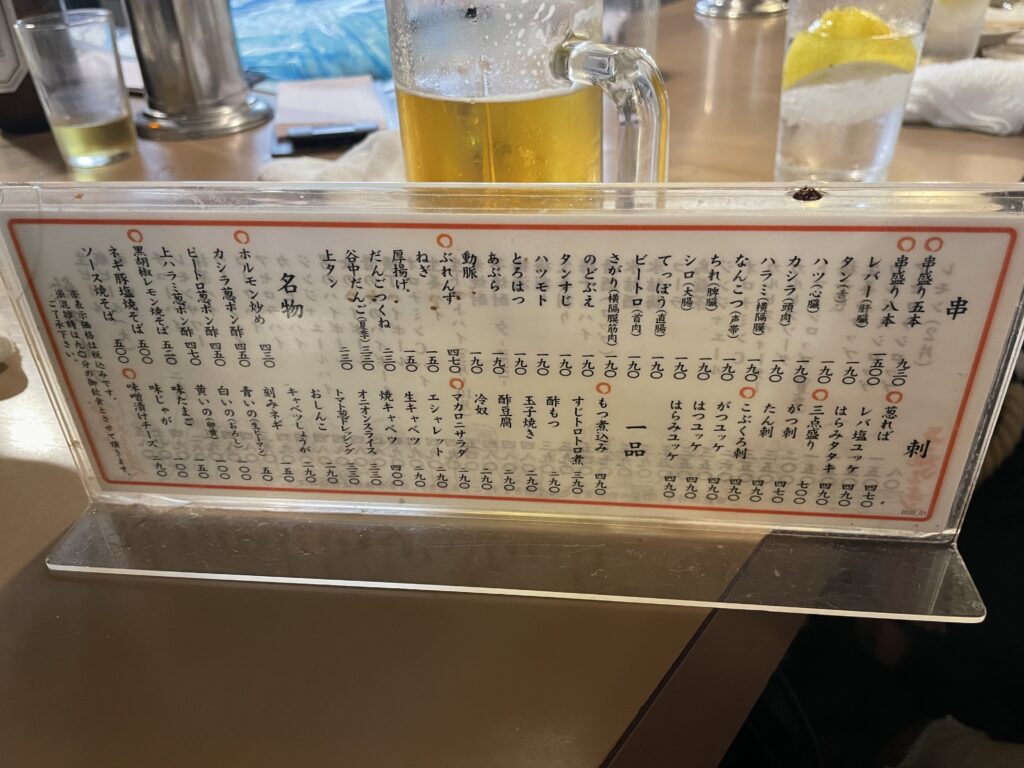 串
串盛り 五本 九三〇
串盛り 八本
レバー(肝臓) 一九〇
タン(舌) 一九〇
ハツ(心臓) 一九〇
カシラ(頭肉) 一九〇
ハラミ(横隔膜) 一九〇
なんこつ(声帯) 一九〇
ちれ(脾臓) 一九〇
シロ(大腸) 一九〇
てっぽう(直腸) 一九〇
ピートロ(首肉) 一九〇
さがり(横隔膜筋肉) 一九〇
のどぶえ 一九〇
タンすじ 一九〇
ハツモト 一九〇
とろはつ 一九〇
あぶら 一九〇
動脈 一九〇
ぶれんず 四七〇
ねぎ 一五〇
厚揚げ 一五〇
だんごつくね 二三〇
谷中だんご(夏季) 三三〇
上タン 二三〇
名物
ホルモン炒め 四三〇
カシラ葱ポン酢 五五〇
ピートロ葱ポン酢 五五〇
上ハラミ葱ポン酢 五五〇
黒胡椒レモン焼そば 五〇〇
ネギ豚塩焼そば 五〇〇
ソース焼そば 五〇〇
刺
葱れば 四七〇
レバ塩ユッケ 四九〇
はらみタタキ 四九〇
三点盛り 七〇〇
がつ刺 四七〇
たん刺 四九〇
こぶくろ刺 四九〇
がつユッケ 四九〇
はつユッケ 四九〇
はらみユッケ 四九〇
一品
もつ煮込み 四九〇
すじトロトロ煮 三九〇
酢もつ 二九〇
玉子焼き 二九〇
酢豆腐 二九〇
冷奴 二九〇
マカロニサラダ 二九〇
エシャレット 二九〇
生キャベツ 二九〇
焼キャベツ 四〇〇
オニオンスライス 三九〇
トマト葱ドレッシング 二九〇
おしんこ 二九〇
キャベツしょうが 二九〇
刻みネギ 一五〇
青いの(生ピーマン) 一〇〇
白いの(おろし) 一〇〇
黄いの(卵黄) 一〇〇
味たまご 一五〇
味じゃが 一〇〇
味噌漬けチーズ 二九〇
※表示価格は税込みです。
※混雑時は九〇分の御飲食とさせて頂きます。
ご了承下さい。
2020_01